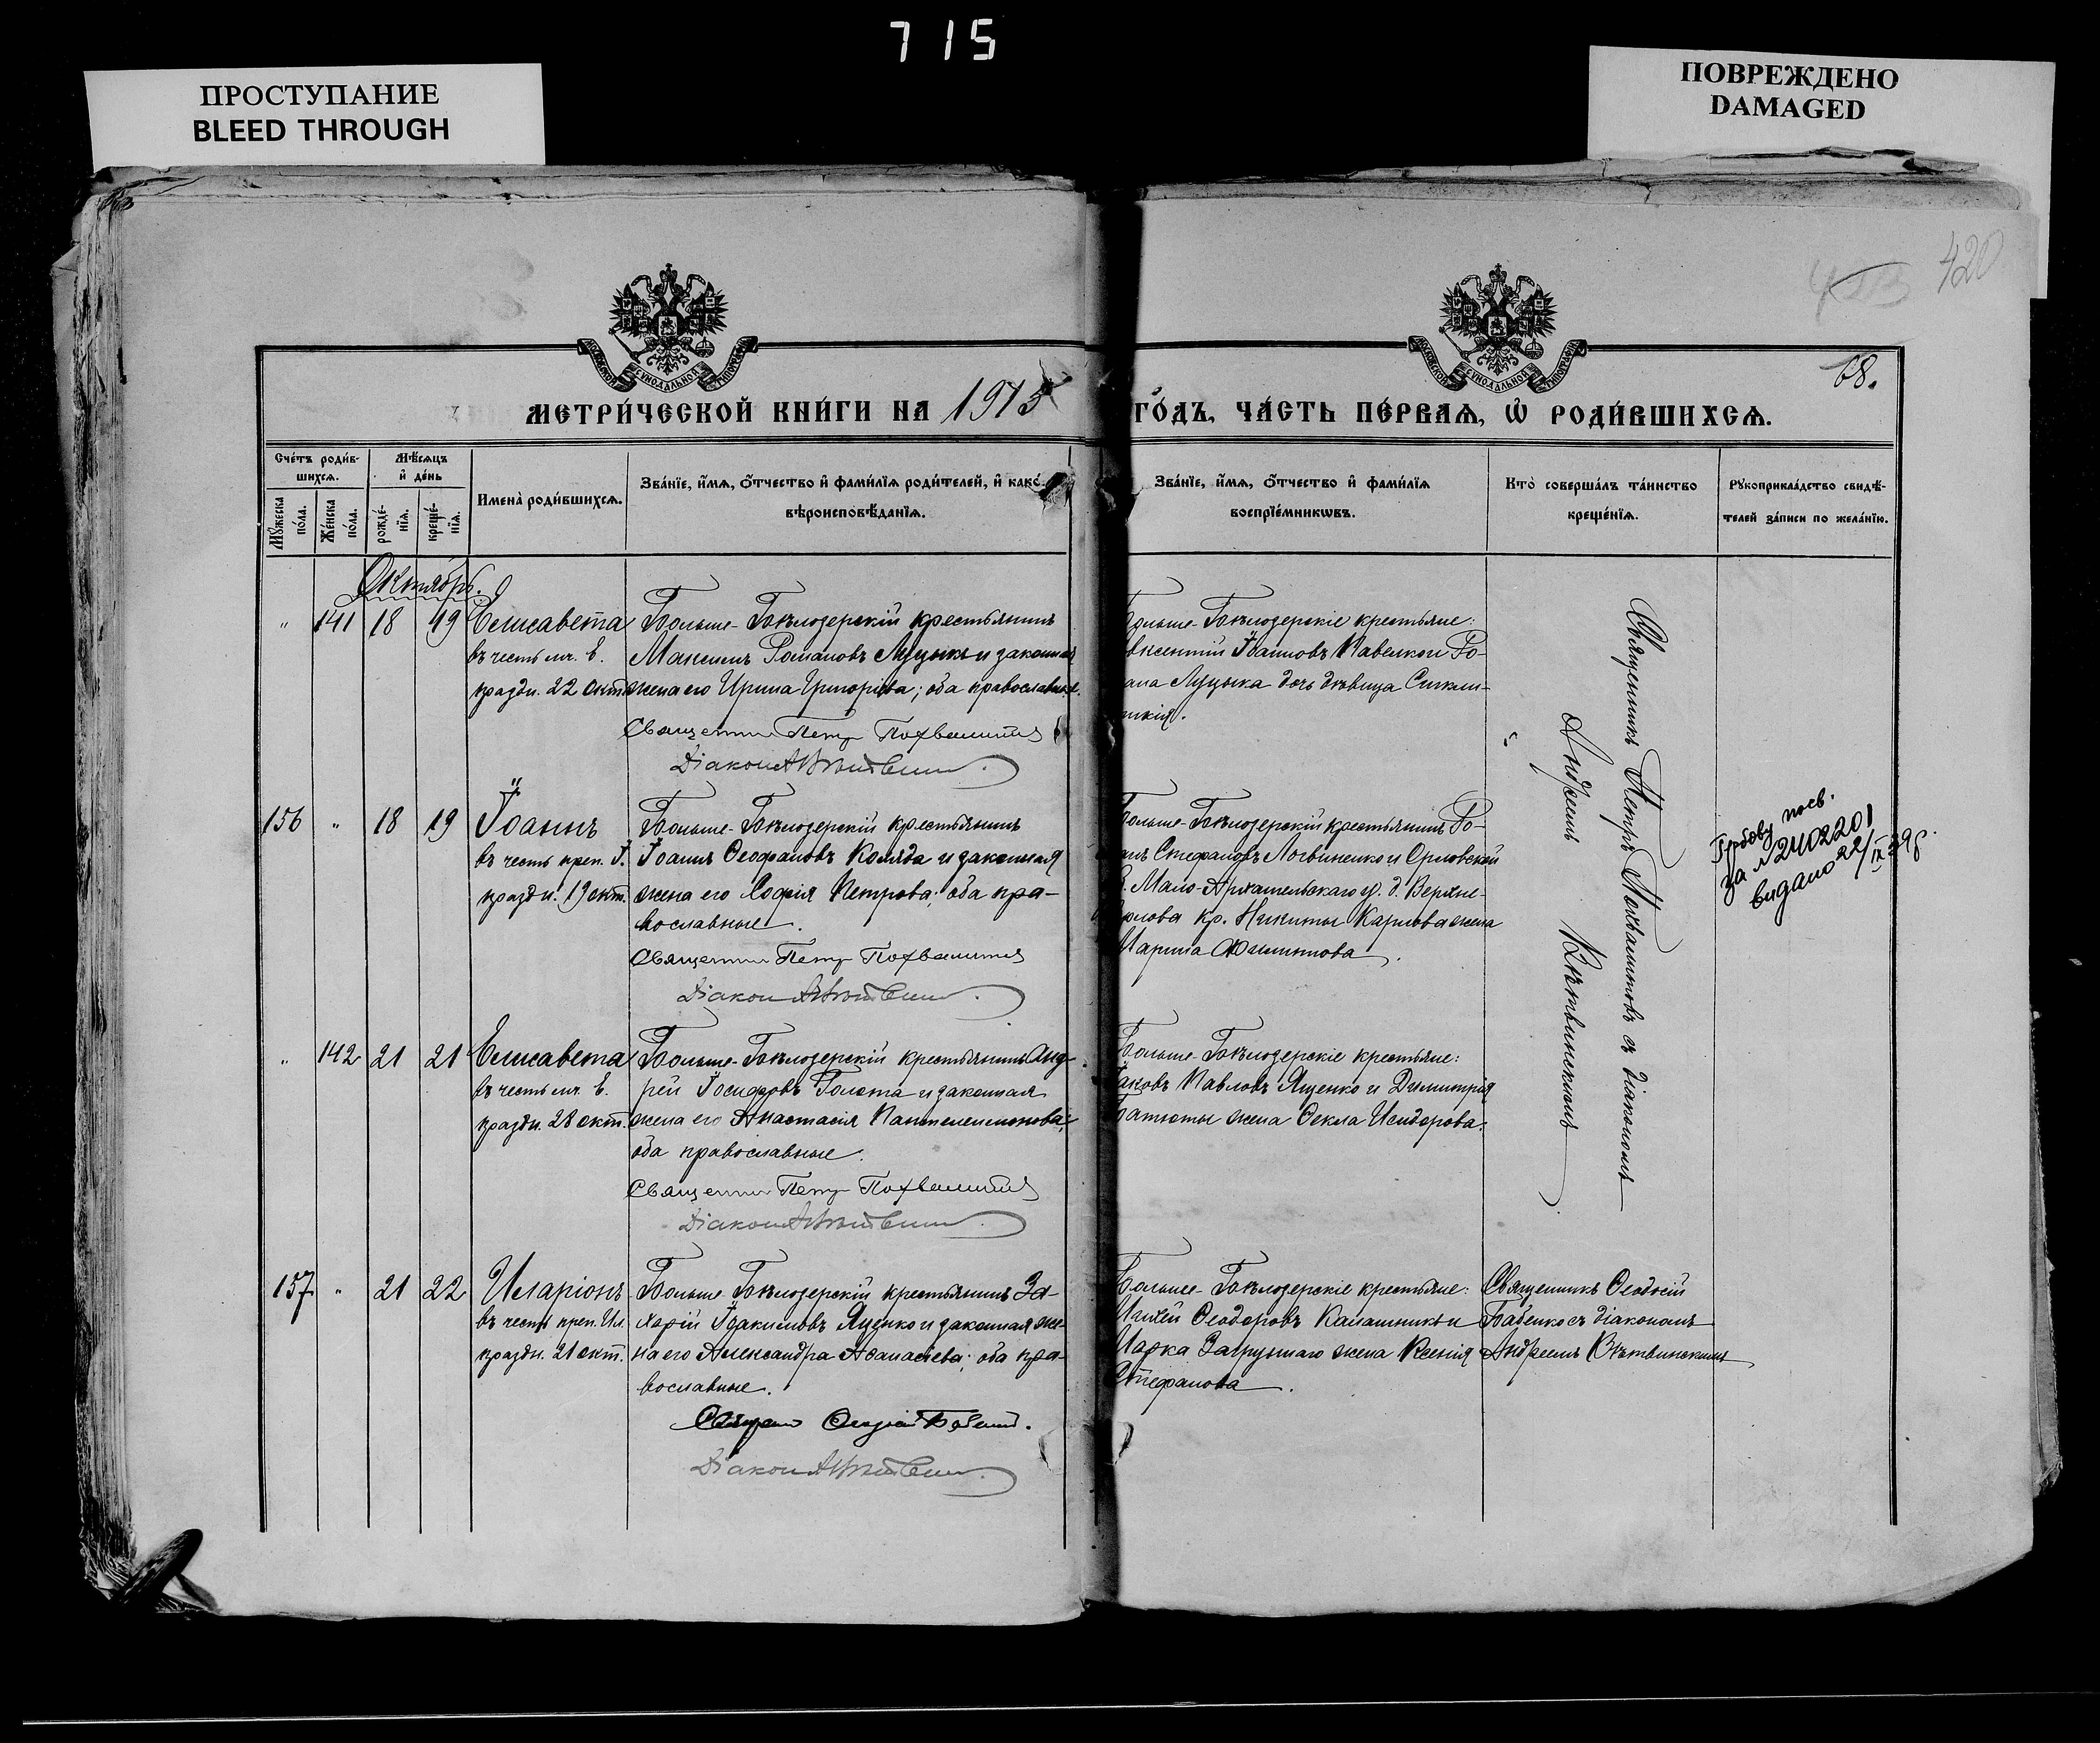 715
ПРОСТУПАНИЕ
BLEED THROUGH
ПОВРЕЖДЕНО
DAMAGED
420
68.
МЕТРИ́ЧЕСКОЙ КНИ́ГИ НА 1913
ГО́ДЪ, ЧА́СТЬ ПЕ́РВАѦ, Ѡ҆ РОДИ́ВШИХСѦ.
Сче́тъ роди́в-
шихсѧ.
Мѣ́сѧцъ
и҆ де́нь
Мꙋ́жеска
по́ла.
Же́нска
по́ла.
рожде́-
нїѧ.
креще́-
нїѧ.
Имена̀ роди́вшихсѧ.
Зва́нїе, и҆́мѧ, о҆́тчество и҆ фами́лїѧ роди́телей, и҆ како́-
вѣроисповѣ́данїѧ.
Зва́нїе, и҆́мѧ, о҆́тчество и҆ фами́лїѧ
воспрїе́мникѡвъ.
Кто̀ соверша́лъ та́инство
креще́нїѧ.
Рꙋкоприкла́дство свидѣ́-
телей за́писи по жела́нїю.
Октябрь.
" 141 18 19 Елисавета
въ честь мч. Е.
праздн. 22 окт.
Больше-Бѣлозерскій крестьянинъ
Максимъ Романовъ Музыка и законная
жена его Ирина Григоріева; оба православные.
Священникъ Петръ Похвалитовъ
Діаконъ А Вѣтвинскій
Больше-Бѣлозерскіе крестьяне:
Авксентій Іоанновъ Павелко и Ро-
мана Музыка дочь дѣвица Синкли-
тикія.
156 " 18 19 Іоаннъ
въ честь преп. І.
праздн. 19 окт.
Больше-Бѣлозерскій крестьянинъ
Іоаннъ Ѳеофановъ Коляда и законная
жена его Софія Петрова; оба пра-
вославные.
Священникъ Петръ Похвалитовъ
Діаконъ А Вѣтвинскій
Больше-Бѣлозерскій крестьянинъ Ро-
манъ Стефановъ Логвиненко и Орловской
г. Мало-Архангельскаго у. д. Верхне-
кр. Никиты Карпова жена
Марина Филиппова.
Священникъ Петръ Похвалитовъ съ діакономъ
Андреемъ Вѣтвинскимъ
посв.
за № 2402201
видано 22/IX 39 р.
" 142 21 21 Елисавета
въ честь мч. Е.
праздн. 28 окт.
Больше-Бѣлозерскій крестьянинъ Анд-
рей Іосифовъ Голота и законная
жена его Анастасія Пантелеимонова;
оба православные.
Священникъ Петръ Похвалитовъ
Діаконъ А Вѣтвинскій
Больше-Бѣлозерскіе крестьяне:
Іаковъ Павловъ Яценко и Димитрія
жена Ѳекла Исидорова.
157 " 21 22 Иларіонъ
въ честь преп. Ил.
праздн. 21 окт.
Больше-Бѣлозерскій крестьянинъ За-
харій Іоакимовъ Яценко и законная же-
на его Александра Аѳанасіева; оба пра-
вославные.
Священникъ Ѳеодосій Бабенко.
Діаконъ А Вѣтвинскій
Больше-Бѣлозерскіе крестьяне:
Михей Ѳеодоровъ Калашникъ и
Марка Загрушаго жена Ксенія
Стефанова.
Священникъ Ѳеодосій
Бабенко съ діакономъ
Андреемъ Вѣтвинскимъ